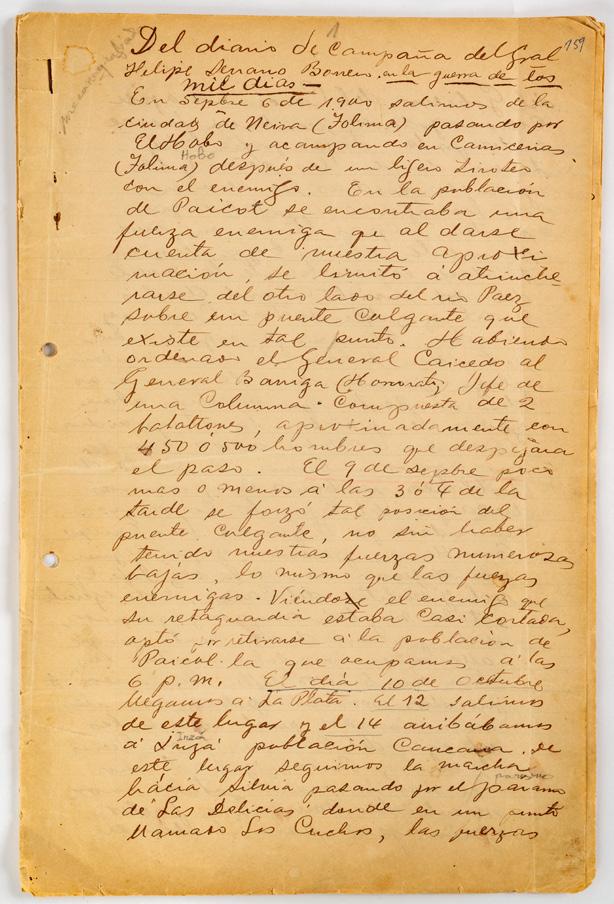 1
159
mecanografiado
Del diario de Campaña del Gral
Felipe Serrano Borrero en la guerra de los
mil dias —
En Sepbre 6 de 1900 salimos de la
ciudad de Neiva (Tolima) pasando por
El Hobo y acampando en Carnicerias
Hobo
(Tolima) después de un ligero tiroteo
con el enemigo. En la población
de Paicol se encontraba una
fuerza enemiga que al darse
cuenta de nuestra aproxi
mación, se limitó á atrinche-
rarse del otro lado del rio Paez
sobre un puente colgante que
existe en tal punto. Habiendo
ordenado el General Caicedo al
General Barriga (Honorato) Jefe de
una Columna Compuesta de 2
batallones, aproximadamente con
450 ó 500 hombres que despejara
el paso. El 9 de sepbre poco
mas o menos á las 3 ó 4 de la
tarde se forzó tal posición del
puente colgante, no sin haber
tenido nuestras fuerzas numerosas
bajas, lo mismo que las fuerzas
enemigas. Viéndose el enemigo que
su retaguardia estaba casi cortada,
optó por retirarse á la población de
Paicol la que ocupamos á las
6 p.m. El dia 10 de Octubre
llegamos á La Plata. El 12 salimos
de este lugar y el 14 arribábamos
Inzá
á Inzá población Caucana. de
este lugar seguimos la marcha
páramo
hácia Silvia pasando por el páramo
de "Las Delicias" donde en un punto
llamado Los Cuchos, las fuerzas